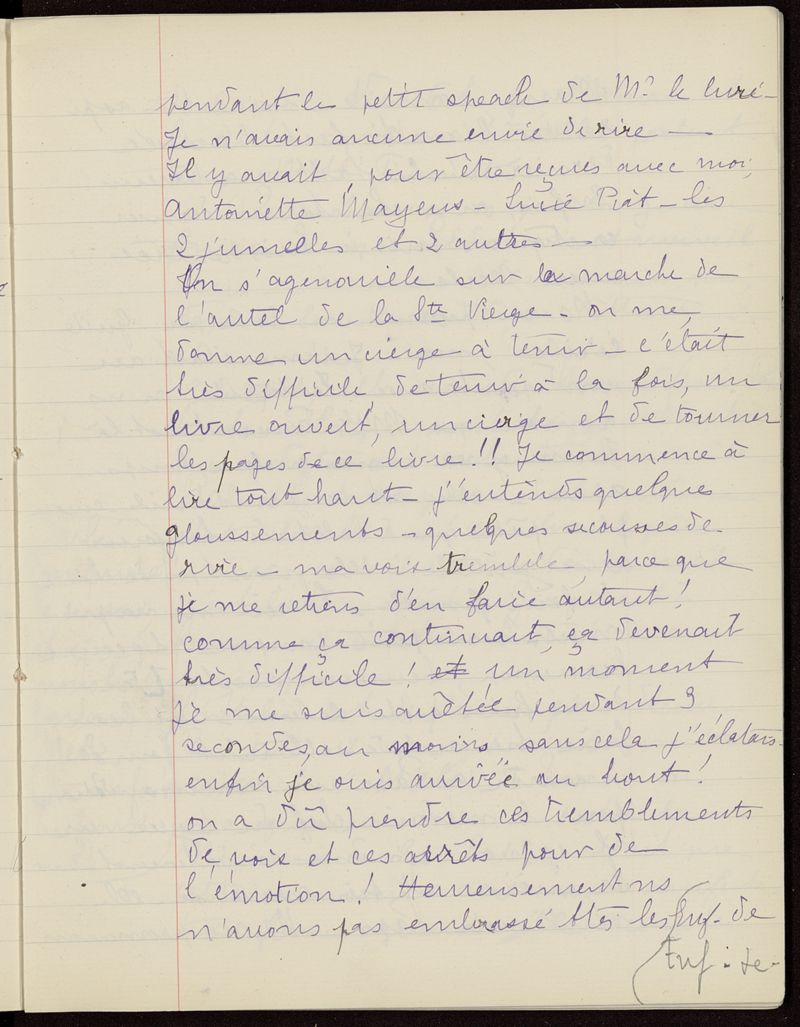 pendant le petit speach de Mr. le Curé -
Je n'avais aucune envie de rire —
Il y avait, pour être reçues avec moi,
Antoinette Mayeus - Lucie Piat - les
2 jumelles et 2 autres —
On s'agenouille sur la marche de
l'autel de la Ste Vierge - on me
donne un cierge à tenir - c'était
très difficile, de tenir à la fois, un
livre ouvert, un cierge et de tourner
les pages de ce livre !! Je commence à
lire tout haut - j'entends quelques
gloussements - quelques secousses de
rire - ma voix tremble, parce que
je me retiens d'en faire autant !
comme ça continuait, ça devenait
très difficile ! et un moment
je me suis arrêtée pendant 3
secondes, au moins sans cela j'éclatais -
enfin je suis arrivée au bout !
on a dû prendre ces tremblements
de voix et ces arrêts pour de
l'émotion ! Heureusement ns
n'avons pas embrassé ttes les Enf. de